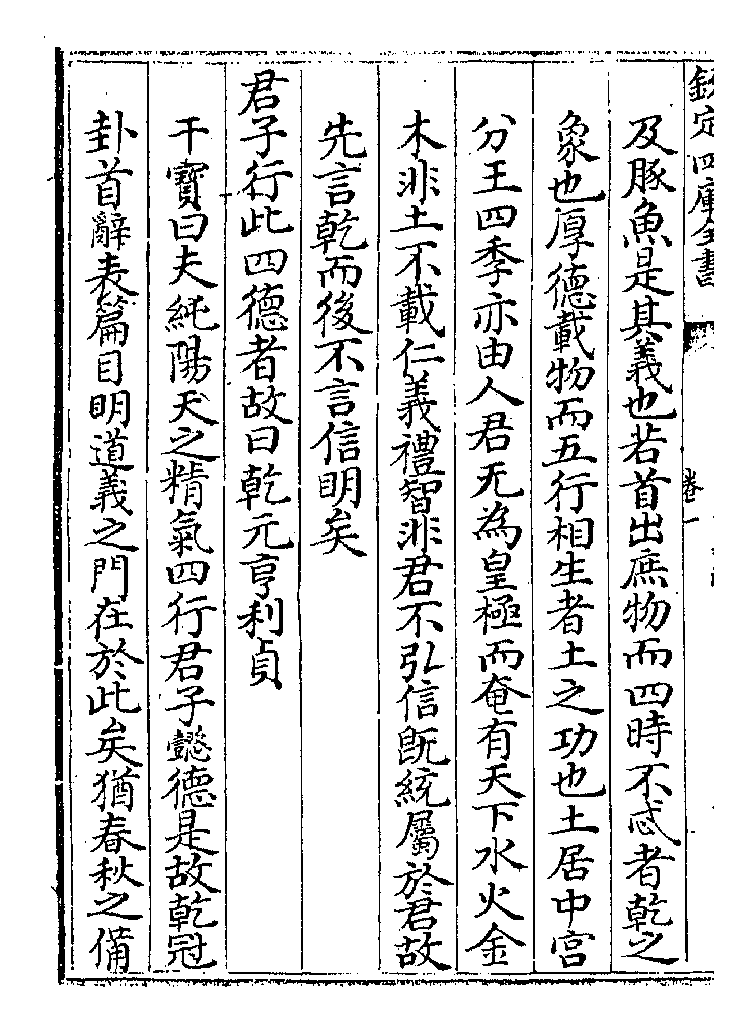 欽定四庫全書
卷一
及豚魚是其義也若首出庶物而四時不忒者乾之
象也厚德載物而五行相生者土之功也土居中宫
分王四季亦由人君无為皇極而奄有天下水火金
木非土不載仁義禮智非君不弘信既統屬於君故
先言乾而後不言信明矣
君子行此四德者故曰乾元亨利貞
干寶曰夫純陽天之精氣四行君子懿德是故乾冠
卦首辭表篇目明道義之門在於此矣猶春秋之備